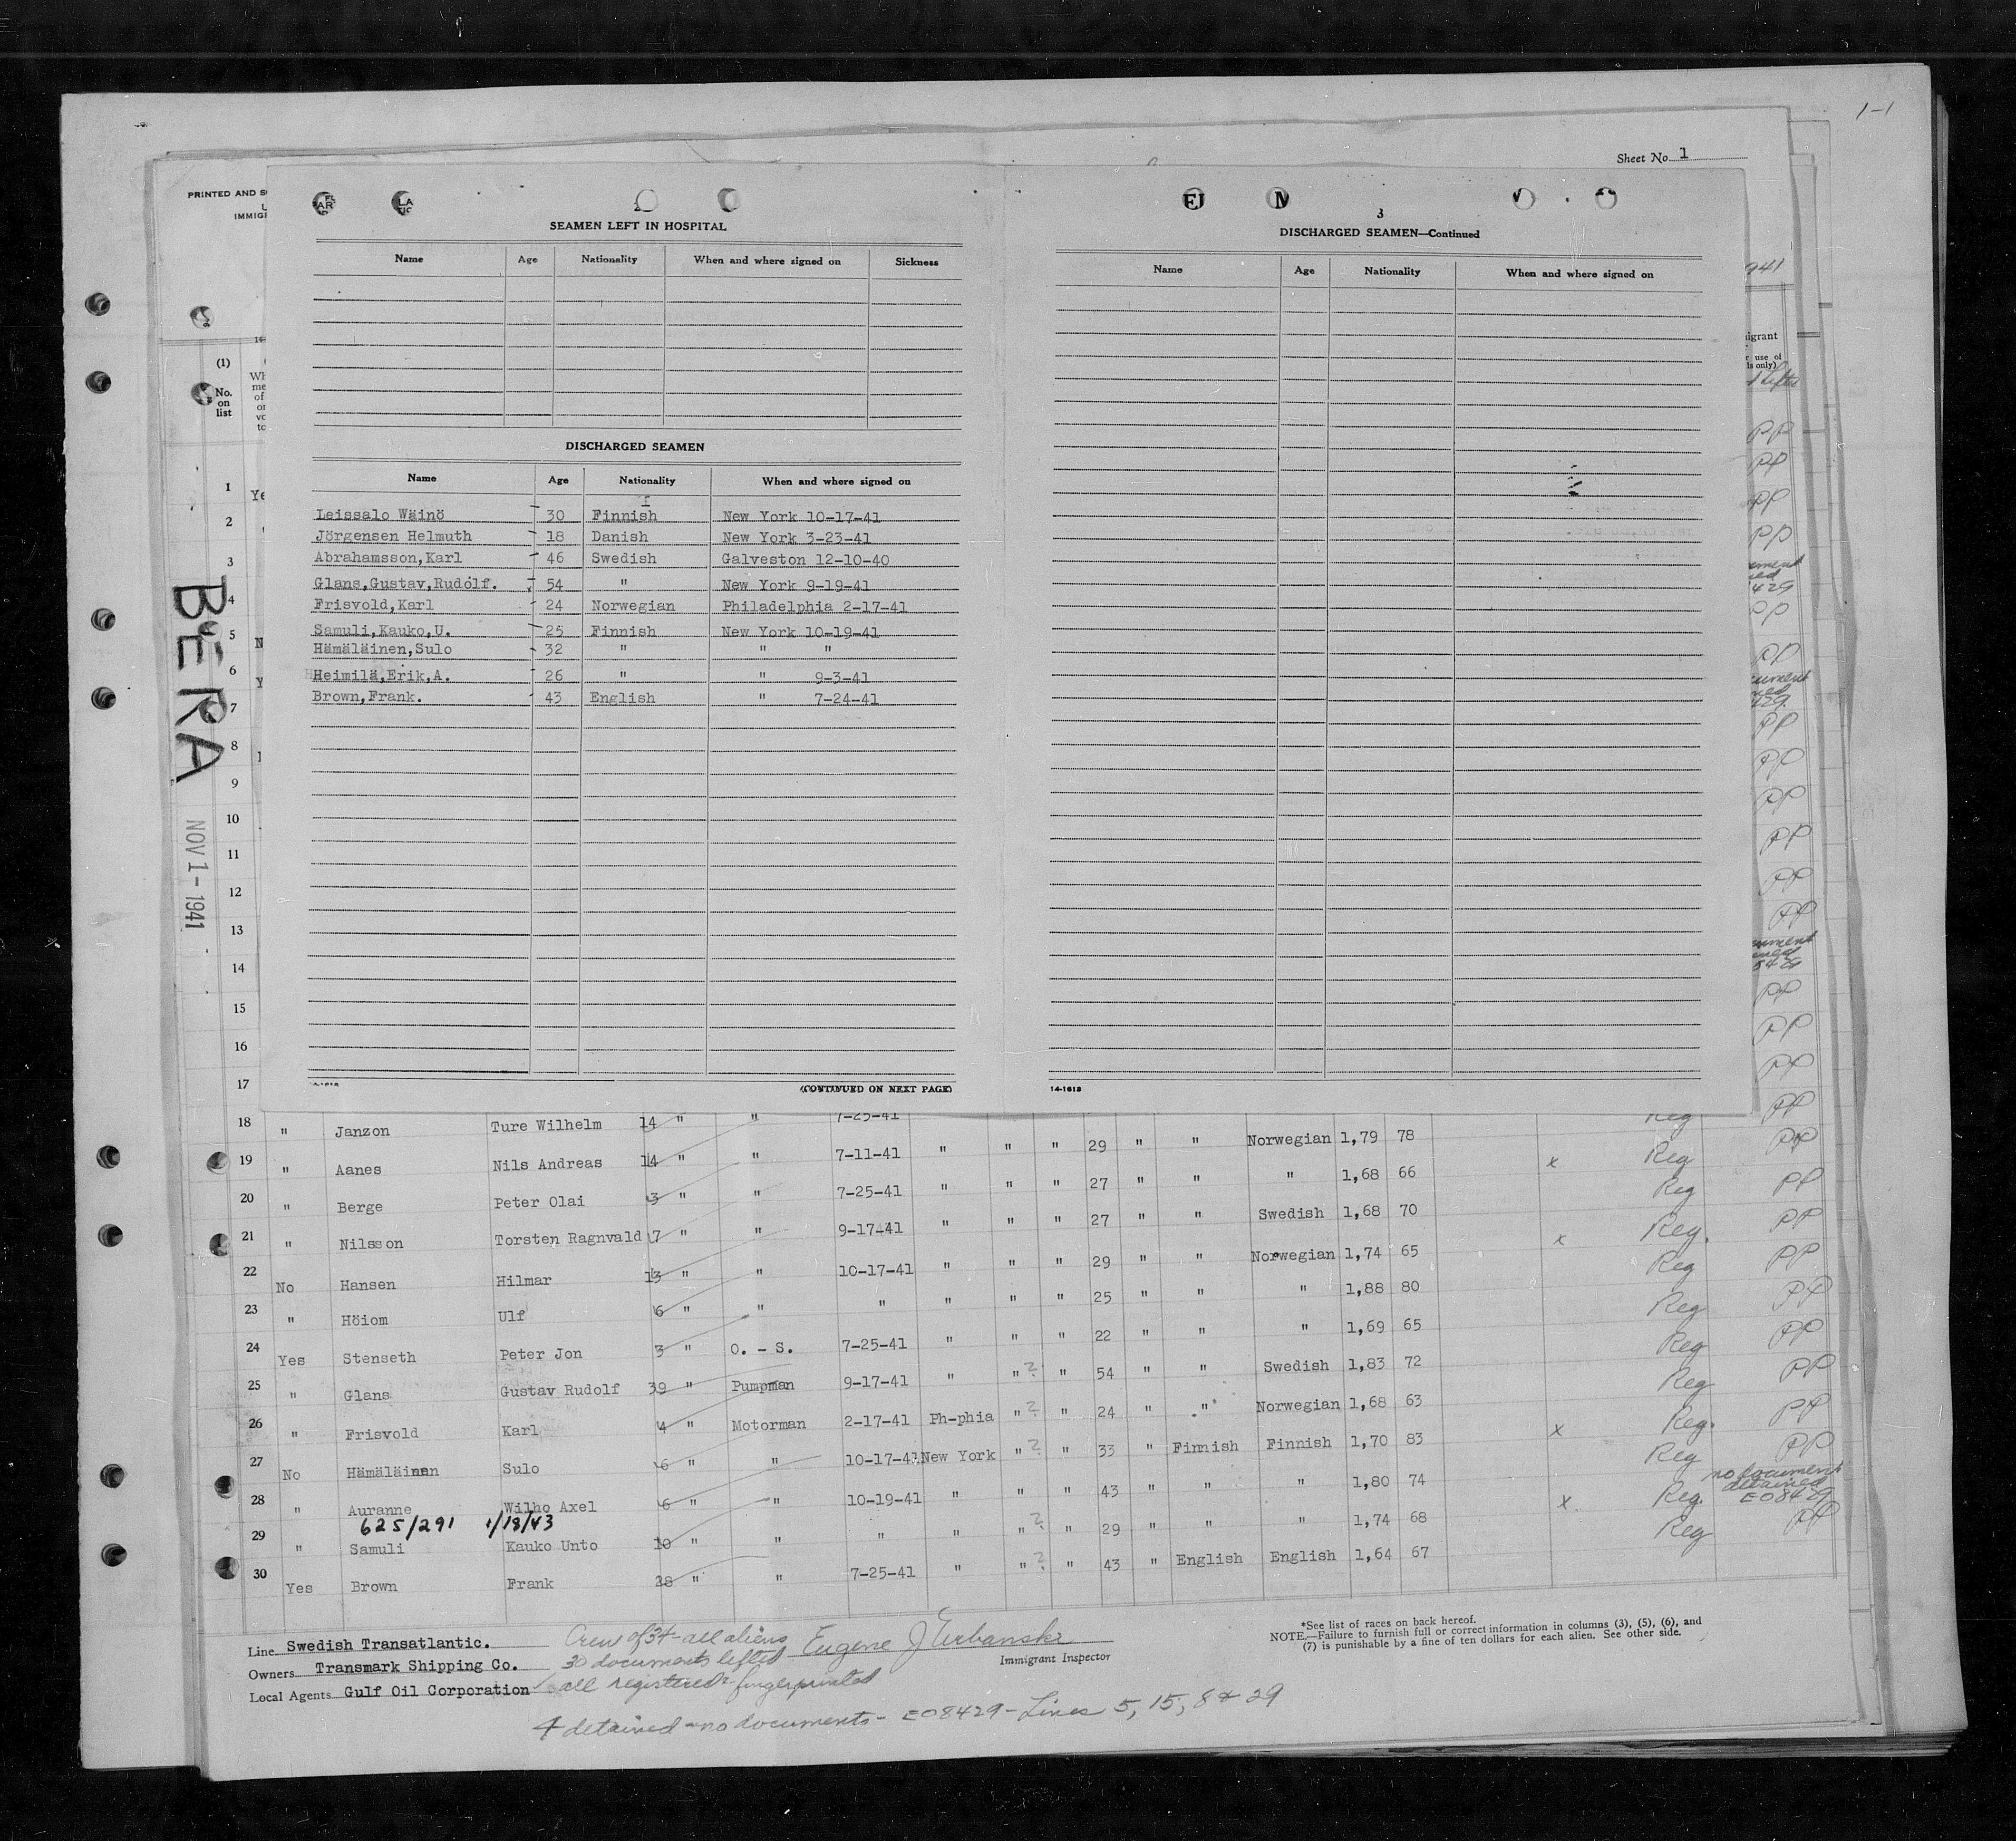 1-1
Sheet No. 1
PRINTED AND S
IMMIG
SEAMEN LEFT IN HOSPITAL
Name Age Nationality When and where signed on Sickness
DISCHARGED SEAMEN
Name Age Nationality When and where signed on
Leissalo Wäinö 30 Finnish New York 10-17-41
Jörgensen Helmuth 18 Danish New York 3-23-41
Abrahamsson,Karl 46 Swedish Galveston 12-10-40
Glans,Gustav,Rudolf. 54 " New York 9-19-41
Frisvold,Karl 24 Norwegian Philadelphia 2-17-41
Samuli,Kauko,U. 25 Finnish New York 10-19-41
Hämäläinen,Sulo 32 " " "
Heimilä,Erik,A. 26 " " 9-3-41
Brown,Frank. 43 English " 7-24-41
(CONTINUED ON NEXT PAGE)
3
DISCHARGED SEAMEN—Continued
Name Age Nationality When and where signed on
14-1613
941
(1)
No.
on
list
BERA
NOV 1 - 1941
1
2
3
4
5
6
7
8
9
10
11
12
13
14
15
16
17
18 " Janzon Ture Wilhelm 14 " " 7-25-41 Reg PP
19 " Aanes Nils Andreas 14 " " 7-11-41 " " " 29 " " Norwegian 1,79 78 x Reg PP
20 " Berge Peter Olai 3 " " 7-25-41 " " " 27 " " " 1,68 66 Reg PP
21 " Nilsson Torsten Ragnvald 7 " " 9-17-41 " " " 27 " " Swedish 1,68 70 x Reg. PP
22 No Hansen Hilmar 13 " " 10-17-41 " " " 29 " " Norwegian 1,74 65 Reg PP
23 " Höiom Ulf 6 " " " " " " 25 " " " 1,88 80 Reg PP
24 Yes Stenseth Peter Jon 3 " O. - S. 7-25-41 " " " 22 " " " 1,69 65 Reg PP
25 " Glans Gustav Rudolf 39 " Pumpman 9-17-41 " " ? " 54 " " Swedish 1,83 72 Reg PP
26 " Frisvold Karl 4 " Motorman 2-17-41 Ph-phia " ? " 24 " " Norwegian 1,68 63 x Reg. PP
27 No Hämäläinen Sulo 6 " " 10-17-41 New York " ? " 33 " Finnish Finnish 1,70 83 Reg PP
28 " Auranne Wilho Axel 6 " " 10-19-41 " " " 43 " " " 1,80 74 x Reg. no document detained E08429
625/291 1/18/43
29 " Samuli Kauko Unto 10 " " " " " ? " 29 " " " 1,74 68 Reg PP
30 Yes Brown Frank 28 " " 7-25-41 " " ? " 43 " English English 1,64 67
Line Swedish Transatlantic.
Owners Transmark Shipping Co.
Local Agents Gulf Oil Corporation
Crew of 34 - all aliens
30 documents lifted
all registered & fingerprinted
4 detained - no documents - E08429 - Lines 5, 15, 8 & 29
Eugene J Urbanski
Immigrant Inspector
*See list of races on back hereof.
NOTE.—Failure to furnish full or correct information in columns (3), (5), (6), and
(7) is punishable by a fine of ten dollars for each alien. See other side.